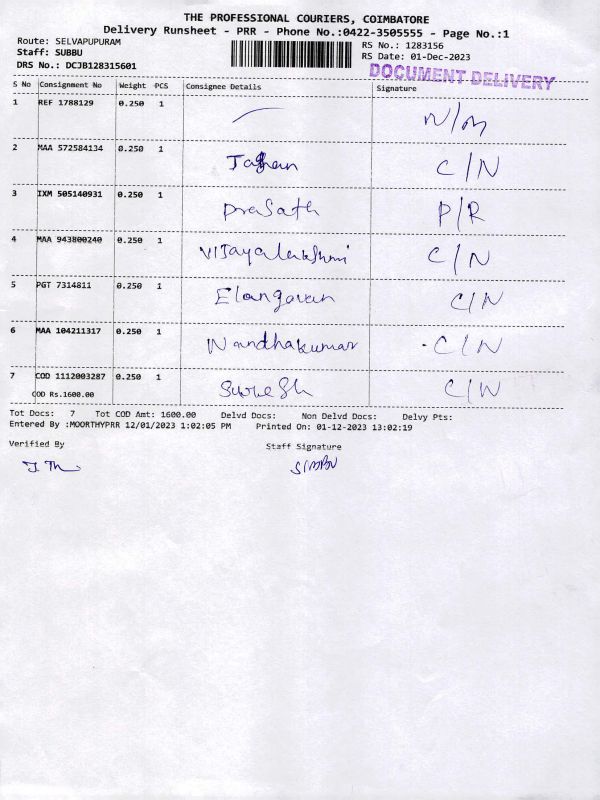 THE PROFESSIONAL COURIERS, COIMBATORE
Delivery Runsheet - PRR - Phone No.:0422-3505555 - Page No.:1
Route: SELVAPUPURAM
Staff: SUBBU
DRS No.: DCJB128315601
RS No.: 1283156
RS Date: 01-Dec-2023
DOCUMENT DELIVERY
S No Consignment No Weight PCS Consignee Details Signature
1 REF 1788129 0.250 1 N/m
2 MAA 572584134 0.250 1 C/N
3 IXM 505140931 0.250 1 Prasath P/R
4 MAA 943800240 0.250 1 Vijayalakshmi C/N
5 PGT 7314811 0.250 1 Elangovan C/N
6 MAA 104211317 0.250 1 Nandhakumar C/N
7 COD 1112003287 0.250 1 Suresh C/N
COD Rs.1600.00
Tot Docs: 7 Tot COD Amt: 1600.00 Delvd Docs: Non Delvd Docs: Delvy Pts:
Entered By :MOORTHYPRR 12/01/2023 1:02:05 PM Printed On: 01-12-2023 13:02:19
Verified By Staff Signature